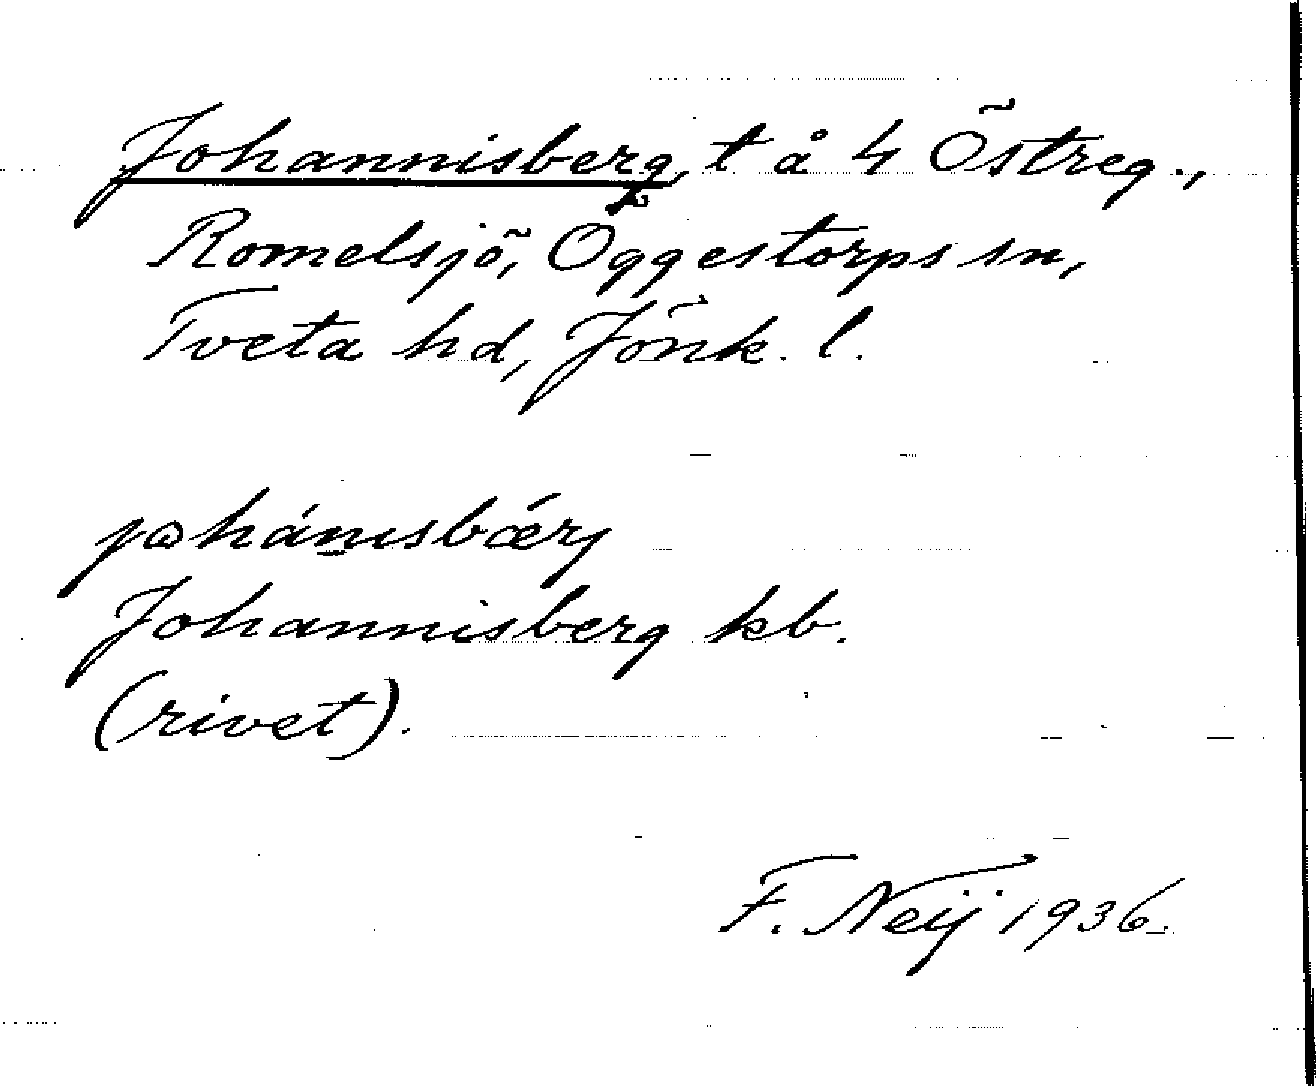 Johannisberg, t å 4 Östreg.,
Romelsjö, Öggestorps sn,
Tveta hd, Jönk. l.
johánısbærj
Johannisberg kb.
(rivet).
F. Neij 1936.